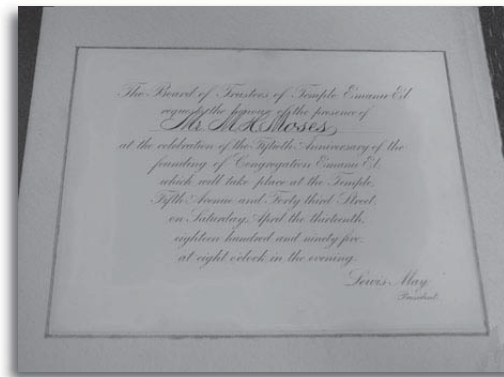 The Board of Trustees of Temple Emanu-El
request the honour of the presence of
Mr M H Moses
at the celebration of the Fiftieth Anniversary of the
founding of Congregation Emanu-El,
which will take place at the Temple,
Fifth Avenue and Forty third Street,
on Saturday, April the thirteenth,
eighteen hundred and ninety five,
at eight o'clock in the evening.
Lewis May,
President.